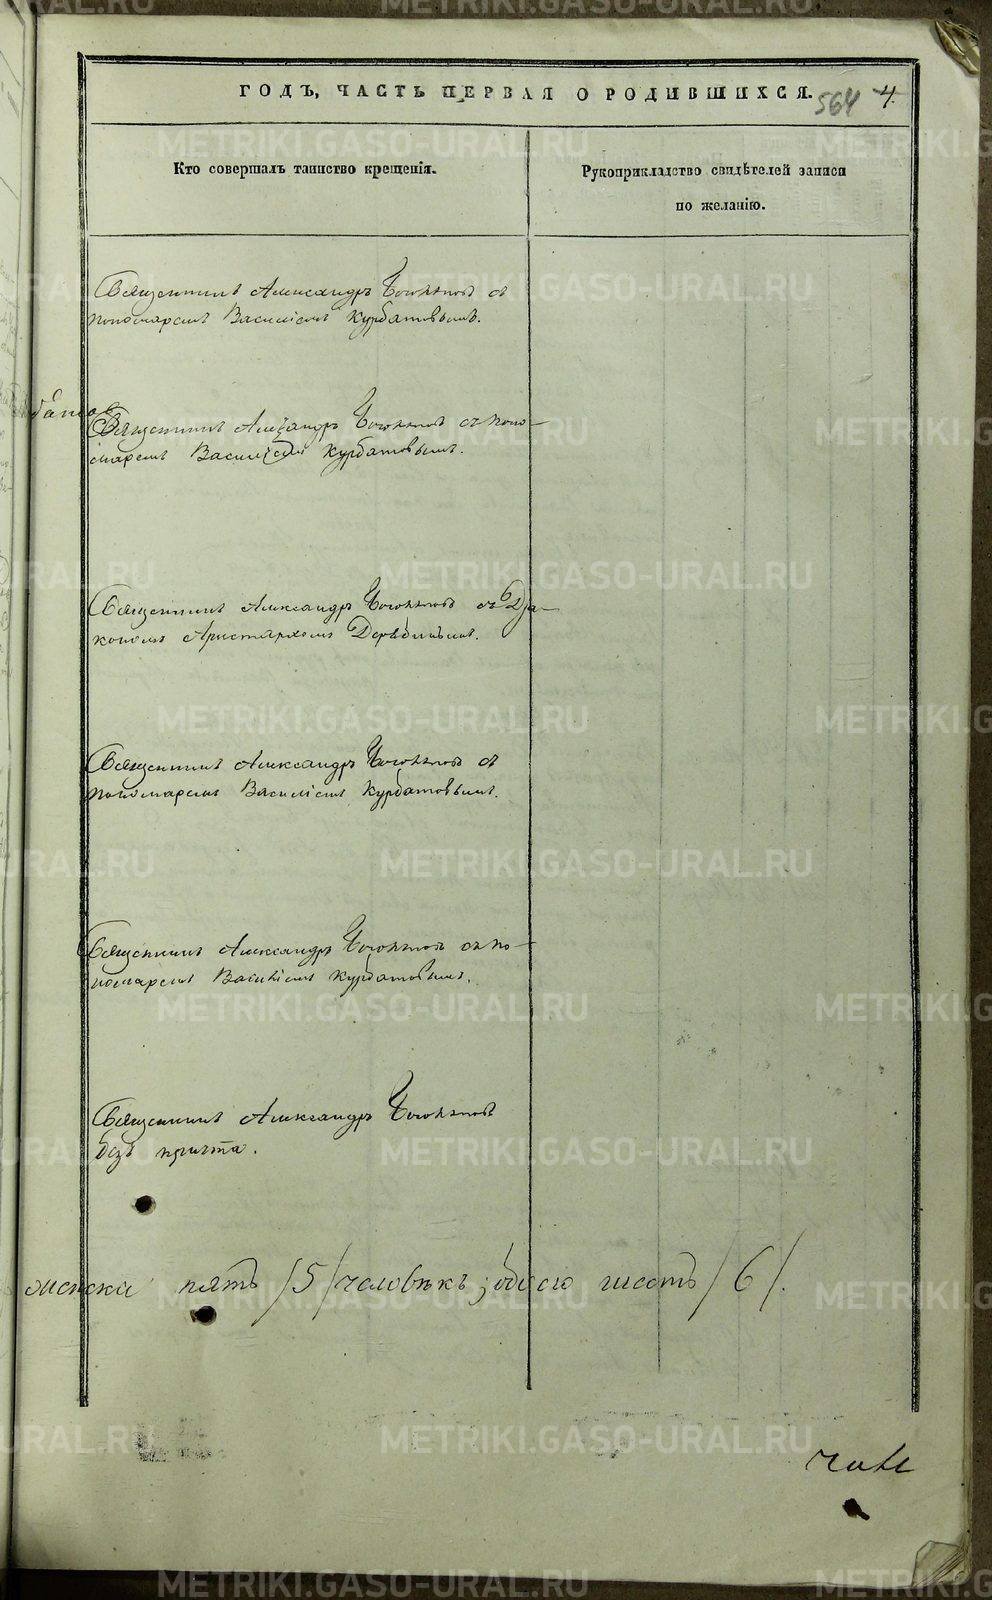 ГОДЪ, ЧАСТЬ ПЕРВАЯ О РОДИВШИХСЯ.
564 4.
Кто совершалъ таинство крещенія.
Рукоприкладство свидѣтелей записи
по желанію.
Священникъ Александръ съ
пономаремъ Василіемъ Курбатовымъ.
Священникъ Александръ съ поно-
маремъ Василіемъ Курбатовымъ.
Священникъ Александръ съ Дья-
кономъ Аристархомъ
Священникъ Александръ съ
пономаремъ Василіемъ Курбатовымъ.
Священникъ Александръ съ по-
номаремъ Василіемъ Курбатовымъ.
Священникъ Александръ
безъ причта.
женска пять /5/ человѣкъ; обоего шесть /6/.
METRIKI.GASO-URAL.RU